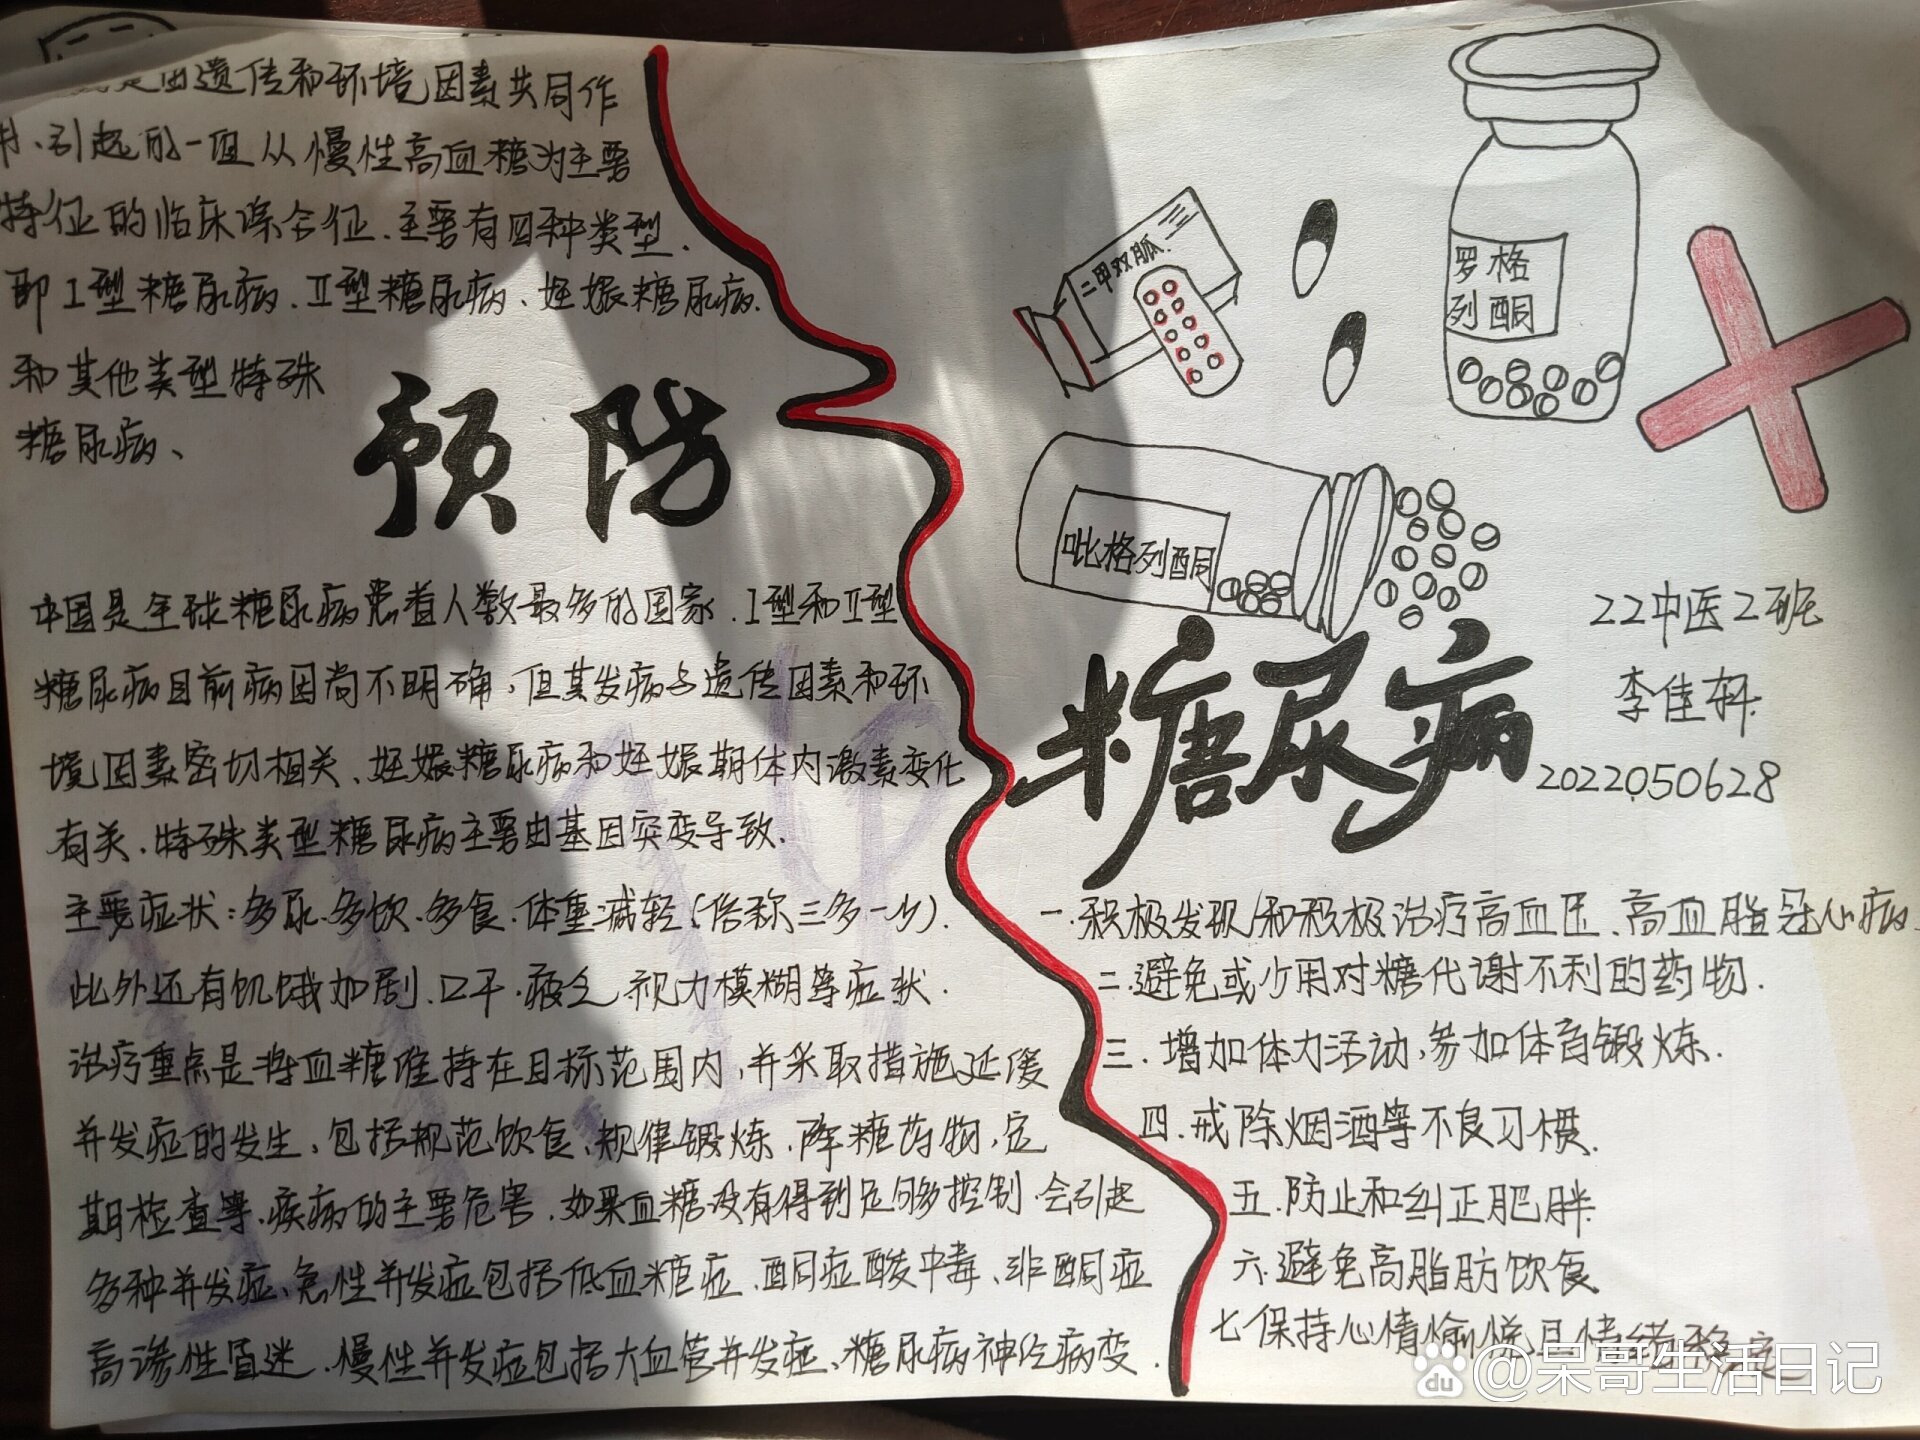 是由遗传和环境因素共同作
引起的一组从慢性高血糖为主要
特征的临床综合征.主要有四种类型.
即I型糖尿病.II型糖尿病、妊娠糖尿病.
和其他类型特殊
糖尿病、
预防
中国是全球糖尿病患者人数最多的国家.I型和II型
糖尿病目前病因尚不明确,但其发病与遗传因素和环
境因素密切相关、妊娠糖尿病和妊娠期体内激素变化
有关.特殊类型糖尿病主要由基因突变导致.
主要症状:多尿.多饮.多食.体重减轻(俗称三多一少).
此外还有饥饿加剧.口干.疲乏.视力模糊等症状.
治疗重点是将血糖维持在目标范围内,并采取措施延缓
并发症的发生、包括规范饮食、规律锻炼.降糖药物,定
期检查等.疾病的主要危害.如果血糖没有得到足够多控制.会引起
多种并发症、急性并发症包括低血糖症.酮症酸中毒、非酮症
高渗性昏迷.慢性并发症包括大血管并发症、糖尿病神经病变.
二甲双胍.
罗格
列酮
吡格列酮
22中医2班
李佳轩.
2022050628
糖尿病
一.积极发现和积极治疗高血压、高血脂冠心病.
二.避免或少用对糖代谢不利的药物.
三.增加体力活动,参加体育锻炼.
四.戒除烟酒等不良习惯.
五.防止和纠正肥胖.
六.避免高脂肪饮食
七保持心情愉悦且情绪稳定
@呆哥生活日记